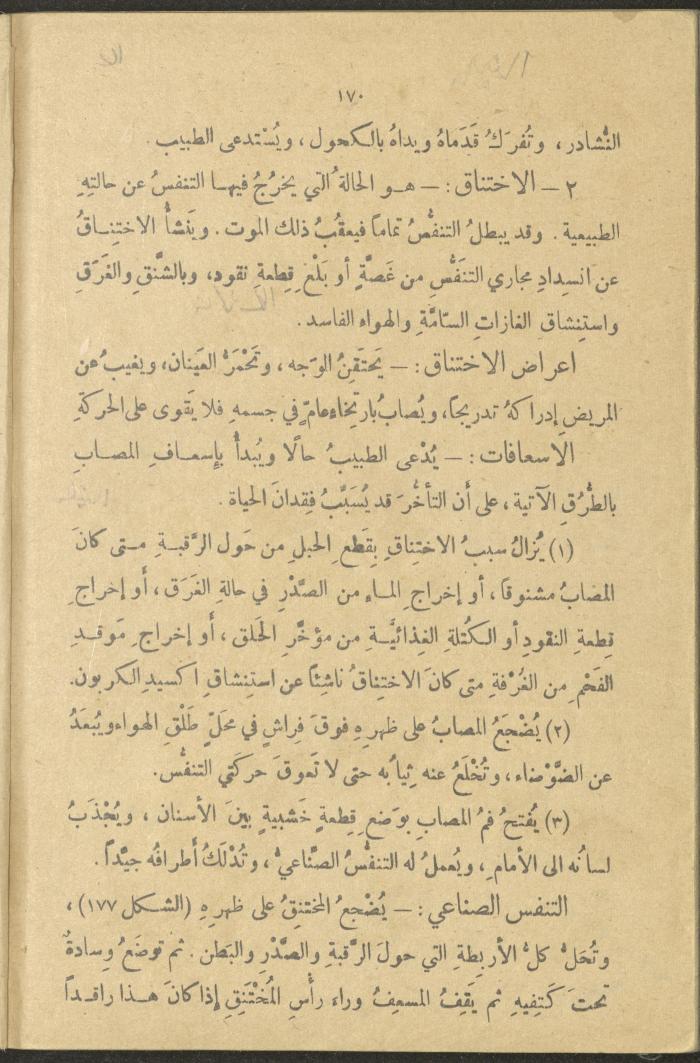 ١٧٠
النُّشادر، وتُفرَكُ قَدَماهُ ويداهُ بالكحول، ويُسْتدعى الطبيب.
٢ — الاختناق: — هو الحالةُ التي يخرُجُ فيها التنفسُ عن حالتِهِ
الطبيعية. وقد يبطلُ التنفُّسُ تماماً فيعقُبُ ذلك الموت. ويَنشأُ الاختِناقُ
عن انسِدادِ مجاري التنَفُّسِ من غَصَّةٍ أو بَلْعِ قِطعةِ نقود، وبالشَّنْقِ والغَرَقِ
واستِنشاقِ الغازاتِ السّامَّةِ والهواءِ الفاسد.
اعراض الاختناق: — يَحتَقِنُ الوَجه، وتَحْمَرُّ العَينان، ويغيبُ عن
المريضِ إدراكهُ تدريجاً، ويُصابُ بارتِخاءٍ عامّ في جسمهِ فلا يَقوى على الحركةِ
الاسعافات: — يُدْعى الطبيبُ حالًا ويُبدأُ بإسعافِ المصابِ
بالطُّرُقِ الآتية، على أن التأخُّرَ قد يُسَبِّبُ فِقدانَ الحياة.
(١) يُزالُ سببُ الاختِناقِ بِقَطعِ الحبلِ من حَولِ الرَّقبةِ متى كانَ
المصابُ مشنوقاً، أو إخراجِ الماءِ من الصَّدْرِ في حالةِ الغَرَق، أو إخراجِ
قِطعةِ النقودِ أو الكُتلةِ الغِذائيَّةِ من مؤخَّرِ الحَلق، أو إخراجِ مَوقدِ
الفَحْمِ من الغُرْفةِ متى كانَ الاختِناقُ ناشِئاً عن استِنشاقِ اكسيدِ الكربون.
(٢) يُضْجَعُ المصابُ على ظهرِهِ فوقَ فِراشٍ في محَلٍّ طَلْقِ الهواء ويُبعَدُ
عن الضَّوْضاء، وتُخْلَعُ عنه ثِيابُه حتى لا تَعوقَ حركَتي التنفُّس.
(٣) يُفتحُ فمُ المصابِ بوَضعِ قِطعةٍ خَشبيةٍ بينَ الأسنان، ويُجْذَبُ
لسانُه الى الأمام، ويُعملُ له التنفسُ الصِّناعيّ، وتُدْلَكُ أطرافُه جيِّداً.
التنفس الصناعي: — يُضْجعُ المختنِقُ على ظهرِهِ (الشكل ١٧٧)،
وتُحَلُّ كلُّ الأربِطةِ التي حولَ الرَّقبةِ والصَّدْرِ والبَطن. ثم توضَعُ وِسادةٌ
تحتَ كَتِفيهِ ثم يَقِفُ المسعِفُ وراء رأسِ المُخْتَنِقِ إذا كانَ هذا راقداً